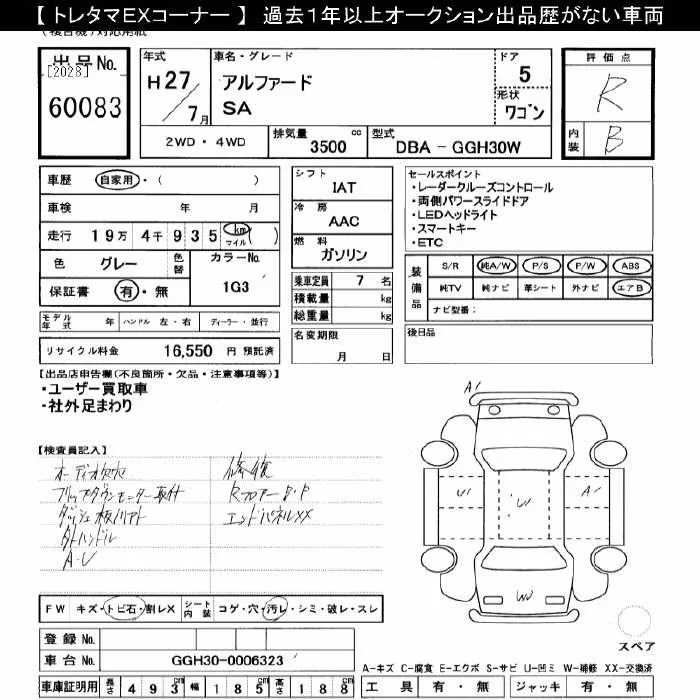 【 トレタマEXコーナー 】 過去1年以上オークション出品歴がない車両
(複合機) 対応用紙
出品No.
[2028]
60083
年式
H27/7月
車名・グレード
アルファード
SA
ドア
5
形状
ワゴン
評価点
R
内装
B
2WD・4WD
排気量
3500 cc
型式
DBA - GGH30W
車歴 自家用・( )
車検 年 月
走行 19万 4千 935 km マイル ( )
色 グレー 色替 カラーNo. 1G3
保証書 有・無
シフト
IAT
冷房
AAC
燃料
ガソリン
乗車定員 7 名
積載量 kg
総重量 kg
セールスポイント
・レーダークルーズコントロール
・両側パワースライドドア
・LEDヘッドライト
・スマートキー
・ETC
装備品
S/R 純A/W P/S P/W ABS
純TV 純ナビ 革シート 外ナビ エアB
ナビ型番:
モデル年式 年 ハンドル 左・右 ディーラー・並行
リサイクル料金 16,550 円 預託済
名変期限
月 日
後日品
【出品店申告欄(不良箇所・欠品・注意事項等)】
・ユーザー買取車
・社外足まわり
【検査員記入】
オーディオ欠穴
フリップダウンモニター取付
外ハンドル
A・U
修復
Rフロアー
エンドパネルXX
A1
U1
W
A1
W
FW キズ・トビ石・割レX シート内装 コゲ・穴・汚レ・シミ・破レ・スレ
登録No.
車台No. GGH30-0006323
車庫証明用 長さ 493 cm 幅 185 cm 高さ 188 cm
スペア
A-キズ C-腐食 E-エクボ S-サビ U-凹ミ W-補修 XX-交換済
工具 有・無 ジャッキ 有・無